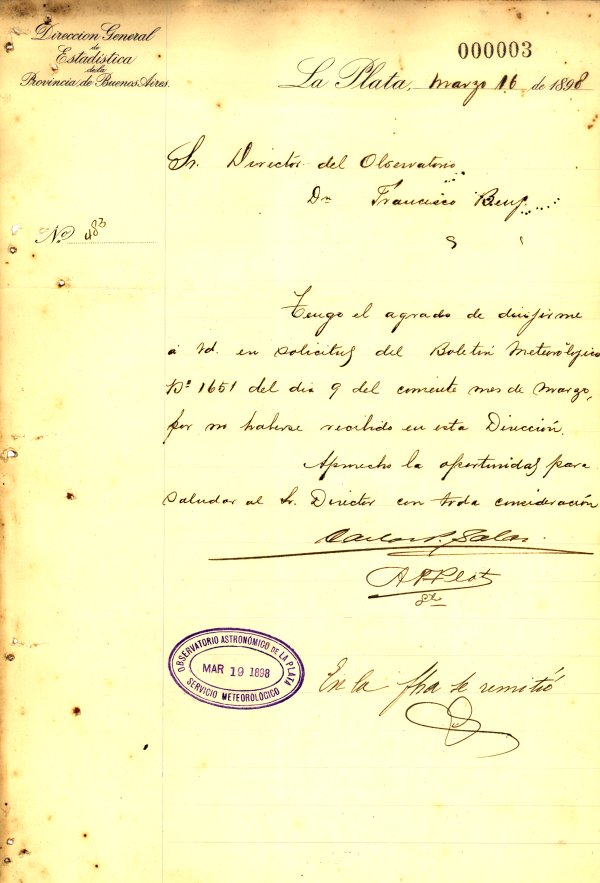 Direccion General
de
Estadística
de la
Provincia de Buenos Aires.
000003
La Plata, Marzo 16 de 1898
Sr. Director del Observatorio
Dr. Francisco Beuf
No 483
Tengo el agrado de dirijirme
á Vd. en solicitud del Boletin Meteorológico
No 1651 del dia 9 del corriente mes de Marzo,
por no haberse recibido en esta Dirección.
Aprovecho la oportunidad para
saludar al Sr. Director con toda consideración
Carlos P. Salas
OBSERVATORIO ASTRONÓMICO DE LA PLATA
MAR 19 1898
SERVICIO METEOROLÓGICO
En la fha se remitió